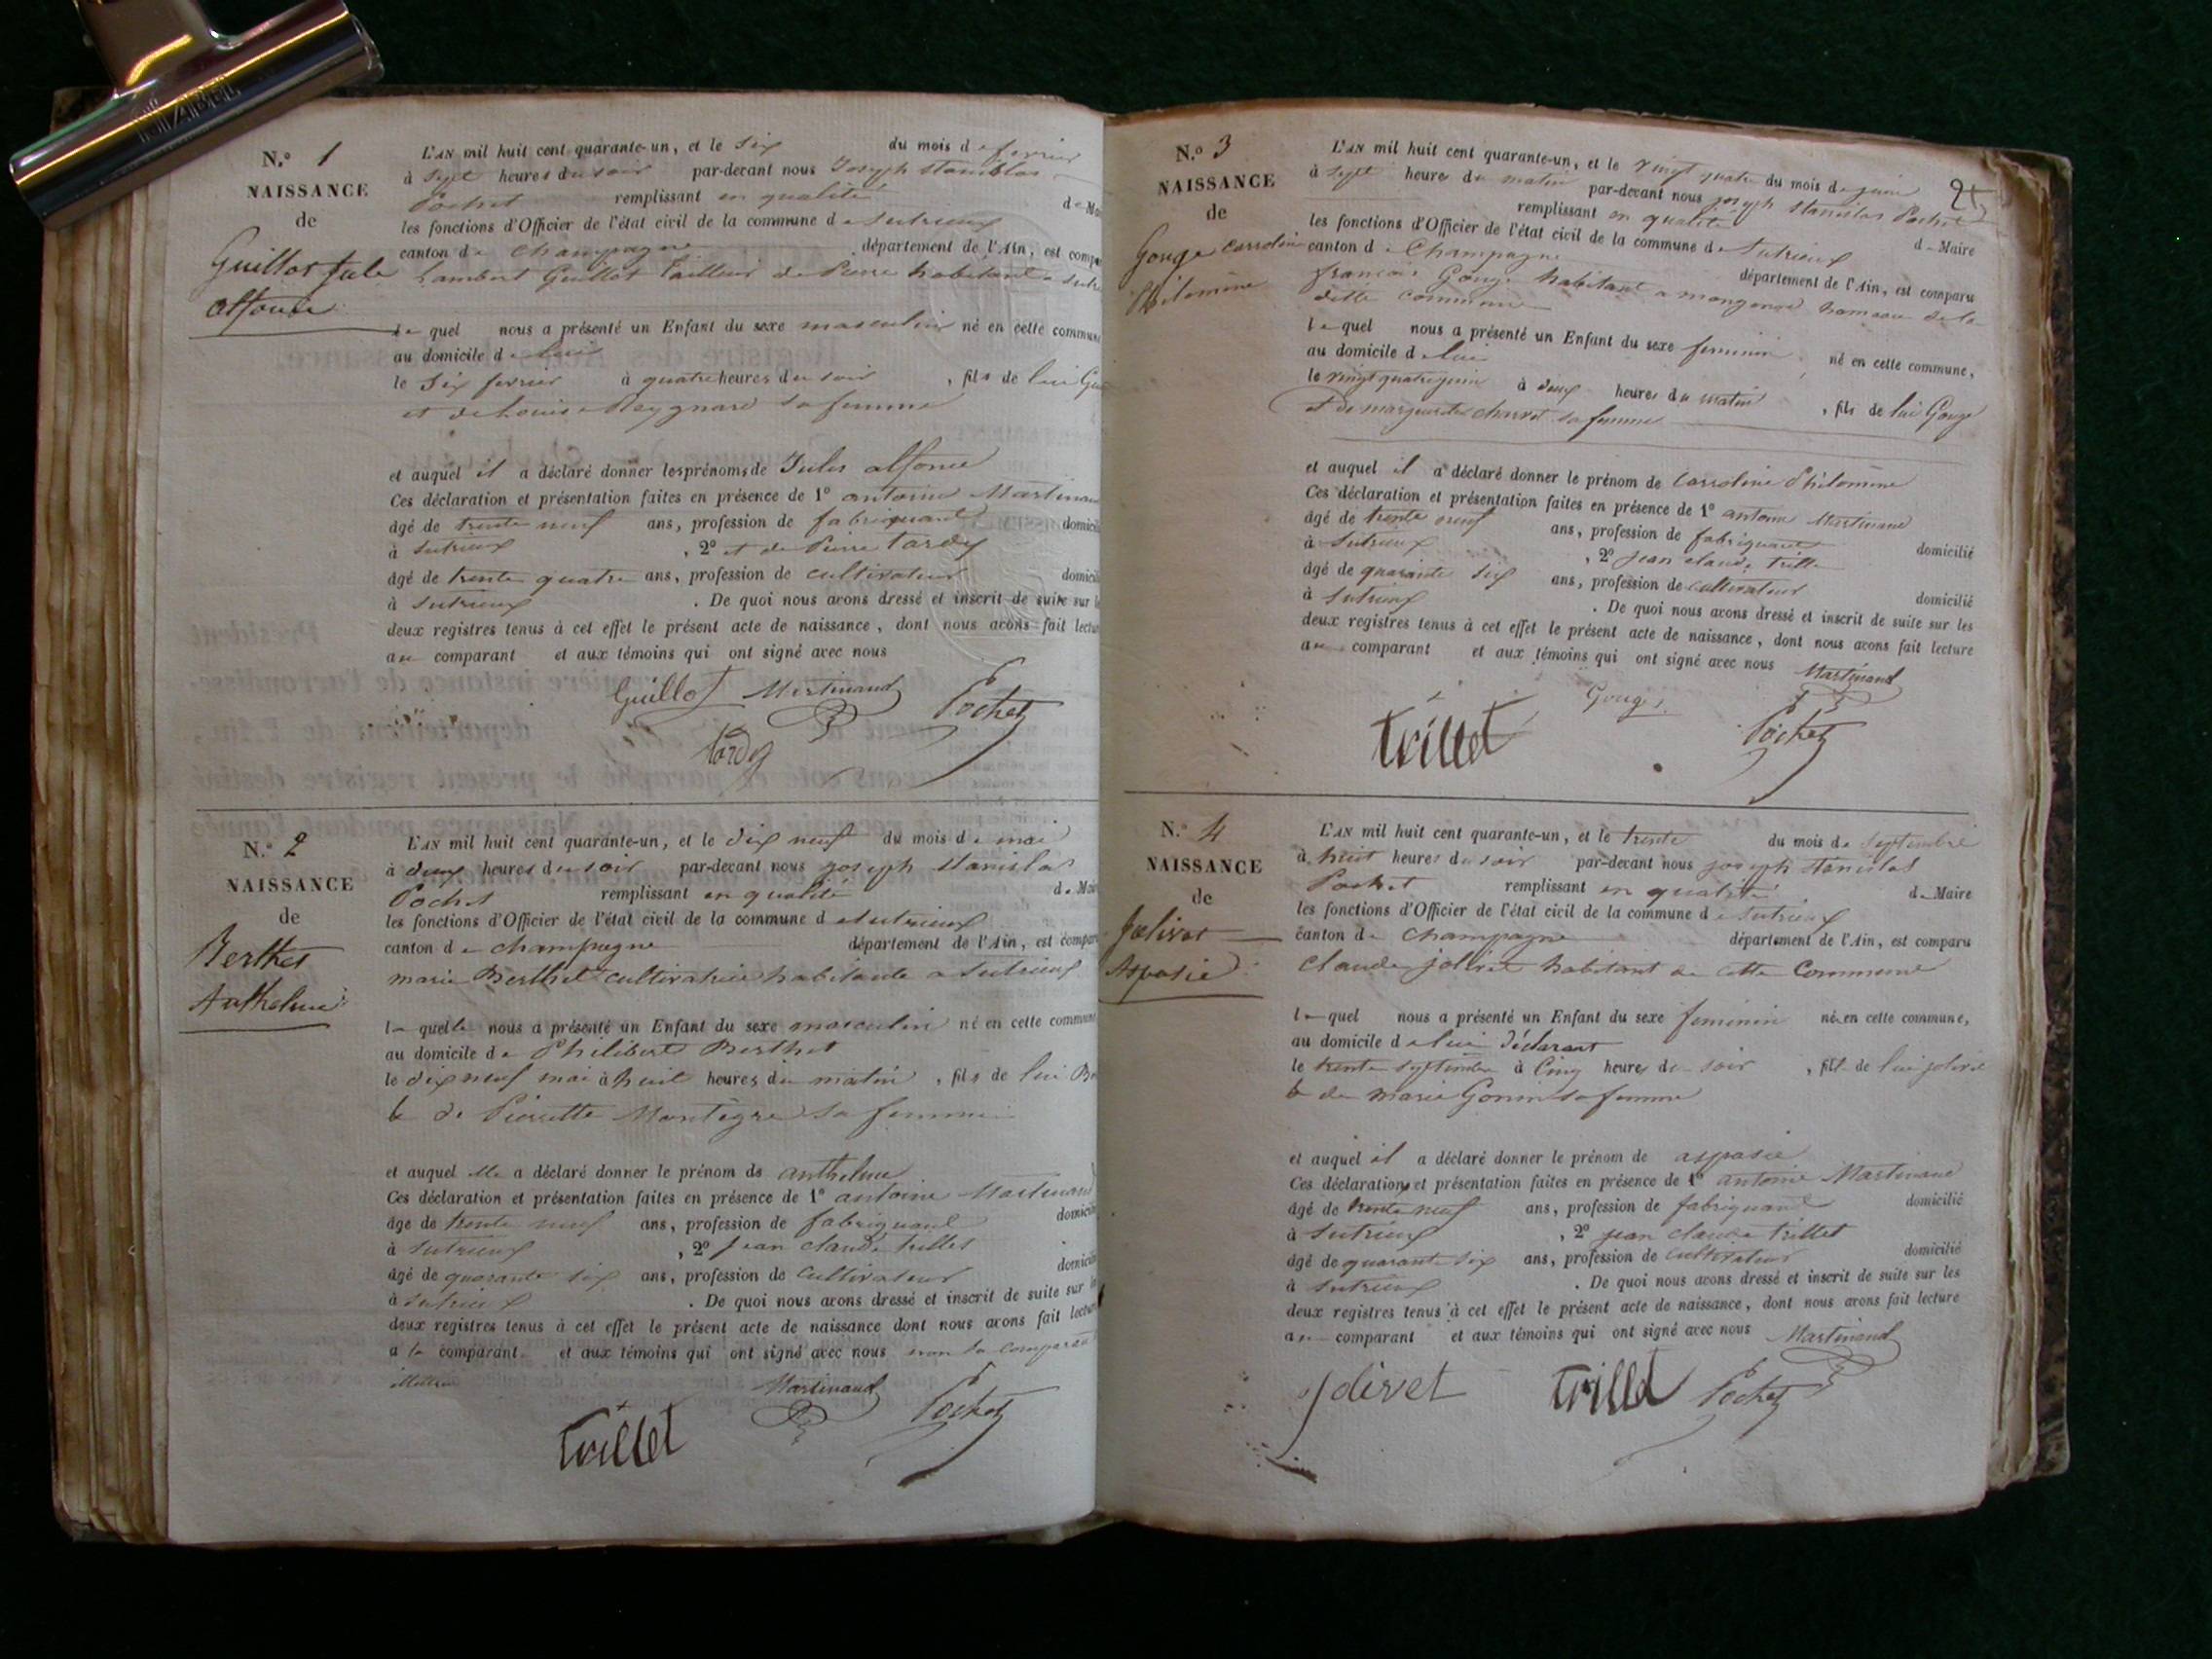 N.º 1
NAISSANCE
de
Guillot Jule
alfonce
L'AN mil huit cent quarante-un, et le Six du mois de fevrier
à Sept heures du soir par-devant nous Joseph Stanislas
Pochet remplissant en qualité de Mai
les fonctions d'Officier de l'état civil de la commune de Sutrieux
canton de Champagne département de l'Ain, est compa
Lambert Guillot tailleur de Pierre habitant a Sutri
le quel nous a présenté un Enfant du sexe masculin né en cette commune
au domicile de lui
le Six fevrier à quatre heures du soir, fils de lui Gui
et de Louise Reygnard sa femme
et auquel il a déclaré donner les prénoms de Jules alfonce
Ces déclaration et présentation faites en présence de 1º antoine Martinand
âgé de trente neuf ans, profession de fabriquand domicili
à Sutrieux, 2º et de Pierre tardy
âgé de trente quatre ans, profession de cultivateur domicili
à Sutrieux. De quoi nous avons dressé et inscrit de suite sur l
deux registres tenus à cet effet le présent acte de naissance, dont nous avons fait lectur
au comparant et aux témoins qui ont signé avec nous
Guillot Martinand Pochet
tardy
N.º 2
NAISSANCE
de
Berthet
Anthelme
L'AN mil huit cent quarante-un, et le dix neuf du mois de mai
à deux heures du soir par-devant nous joseph Stanislas
Pochet remplissant en qualité de Maire
les fonctions d'Officier de l'état civil de la commune de Sutrieux
canton de Champagne département de l'Ain, est compar
marie Berthet cultivatrice habitante a Sutrieux
la quelle nous a présenté un Enfant du sexe masculin né en cette commune
au domicile de Philibert Berthet
le dix neuf mai à huit heures du matin, fils de lui Be
& de Pierrette Montègre sa femme
et auquel elle a déclaré donner le prénom de anthelme
Ces déclaration et présentation faites en présence de 1º antoine Martinand
âgé de trente neuf ans, profession de fabriquand domicili
à Sutrieux, 2º jean claude trillet
âgé de quarante six ans, profession de cultivateur domicili
à Sutrieux. De quoi nous avons dressé et inscrit de suite sur les
deux registres tenus à cet effet le présent acte de naissance dont nous avons fait lecture
a la comparant et aux témoins qui ont signé avec nous non la comparan
Martinand Pochet
trillet
N.º 3
NAISSANCE
de
Gouge Carroline
Philomène
L'AN mil huit cent quarante-un, et le vingt quatre du mois de juin
à Sept heures du matin par-devant nous joseph Stanislas Pochet
remplissant en qualité de Maire
les fonctions d'Officier de l'état civil de la commune de Sutrieux
canton de Champagne département de l'Ain, est comparu
francois Gouge habitant a mongonod hameau de la
ditte commune
le quel nous a présenté un Enfant du sexe feminin, né en cette commune,
au domicile de lui
le vingt quatre juin à deux heures du matin, fils de lui Gouge
et de marguerite charvet sa femme
et auquel il a déclaré donner le prénom de Carroline Philomène
Ces déclaration et présentation faites en présence de 1º antoine Martinand
âgé de trente neuf ans, profession de fabriquand domicilié
à Sutrieux, 2º jean claude trillet
âgé de quarante six ans, profession de cultivateur domicilié
à Sutrieux. De quoi nous avons dressé et inscrit de suite sur les
deux registres tenus à cet effet le présent acte de naissance, dont nous avons fait lecture
au comparant et aux témoins qui ont signé avec nous Martinand
trillet Gouge Pochet
N.º 4
NAISSANCE
de
Jolivet
Aspasie
L'AN mil huit cent quarante-un, et le trente du mois de Septembre
à huit heures du soir par-devant nous joseph Stanislas
Pochet remplissant en qualité de Maire
les fonctions d'Officier de l'état civil de la commune de Sutrieux
canton de Champagne département de l'Ain, est comparu
Claude jolivet habitant de cette Commune
le quel nous a présenté un Enfant du sexe feminin né en cette commune,
au domicile de lui déclarant
le trente Septembre à Cinq heures du soir, fille de lui jolivet
& de marie Gonin sa femme
et auquel il a déclaré donner le prénom de aspasie
Ces déclarations et présentation faites en présence de 1º antoine Martinand
âgé de trente neuf ans, profession de fabriquand domicilié
à Sutrieux, 2º jean claude trillet
âgé de quarante six ans, profession de Cultivateur domicilié
à Sutrieux. De quoi nous avons dressé et inscrit de suite sur les
deux registres tenus à cet effet le présent acte de naissance, dont nous avons fait lecture
au comparant et aux témoins qui ont signé avec nous Martinand
jolivet trillet Pochet